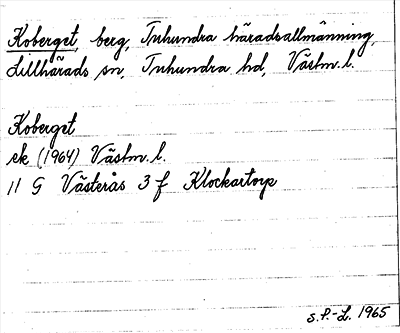 Koberget, berg, Tuhundra häradsallmänning,
Lillhärads sn, Tuhundra hd, Västm. l.
Koberget
ek (1964) Västm. l.
11 G Västerås 3 f Klockartorp
S.P.-L. 1965